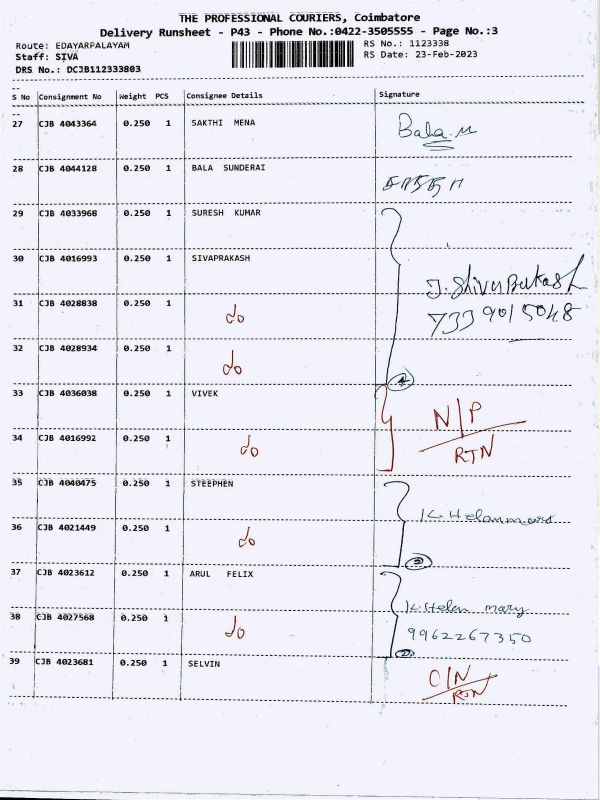 THE PROFESSIONAL COURIERS, Coimbatore
Delivery Runsheet - P43 - Phone No.:0422-3505555 - Page No.:3
Route: EDAYARPALAYAM
RS No.: 1123338
Staff: SIVA
RS Date: 23-Feb-2023
DRS No.: DCJB112333803
S No Consignment No Weight PCS Consignee Details Signature
27 CJB 4043364 0.250 1 SAKTHI MENA Bala.M
28 CJB 4044128 0.250 1 BALA SUNDERAI
29 CJB 4033968 0.250 1 SURESH KUMAR
30 CJB 4016993 0.250 1 SIVAPRAKASH
J. Shiva
31 CJB 4028838 0.250 1 do
733 9015048
32 CJB 4028934 0.250 1 do
4
33 CJB 4036038 0.250 1 VIVEK N/P
34 CJB 4016992 0.250 1 do RTN
35 CJB 4040475 0.250 1 STEEPHEN
K. Helan
36 CJB 4021449 0.250 1 do
37 CJB 4023612 0.250 1 ARUL FELIX
K. Helen mary
38 CJB 4027568 0.250 1 do 9962267350
39 CJB 4023681 0.250 1 SELVIN
RTN